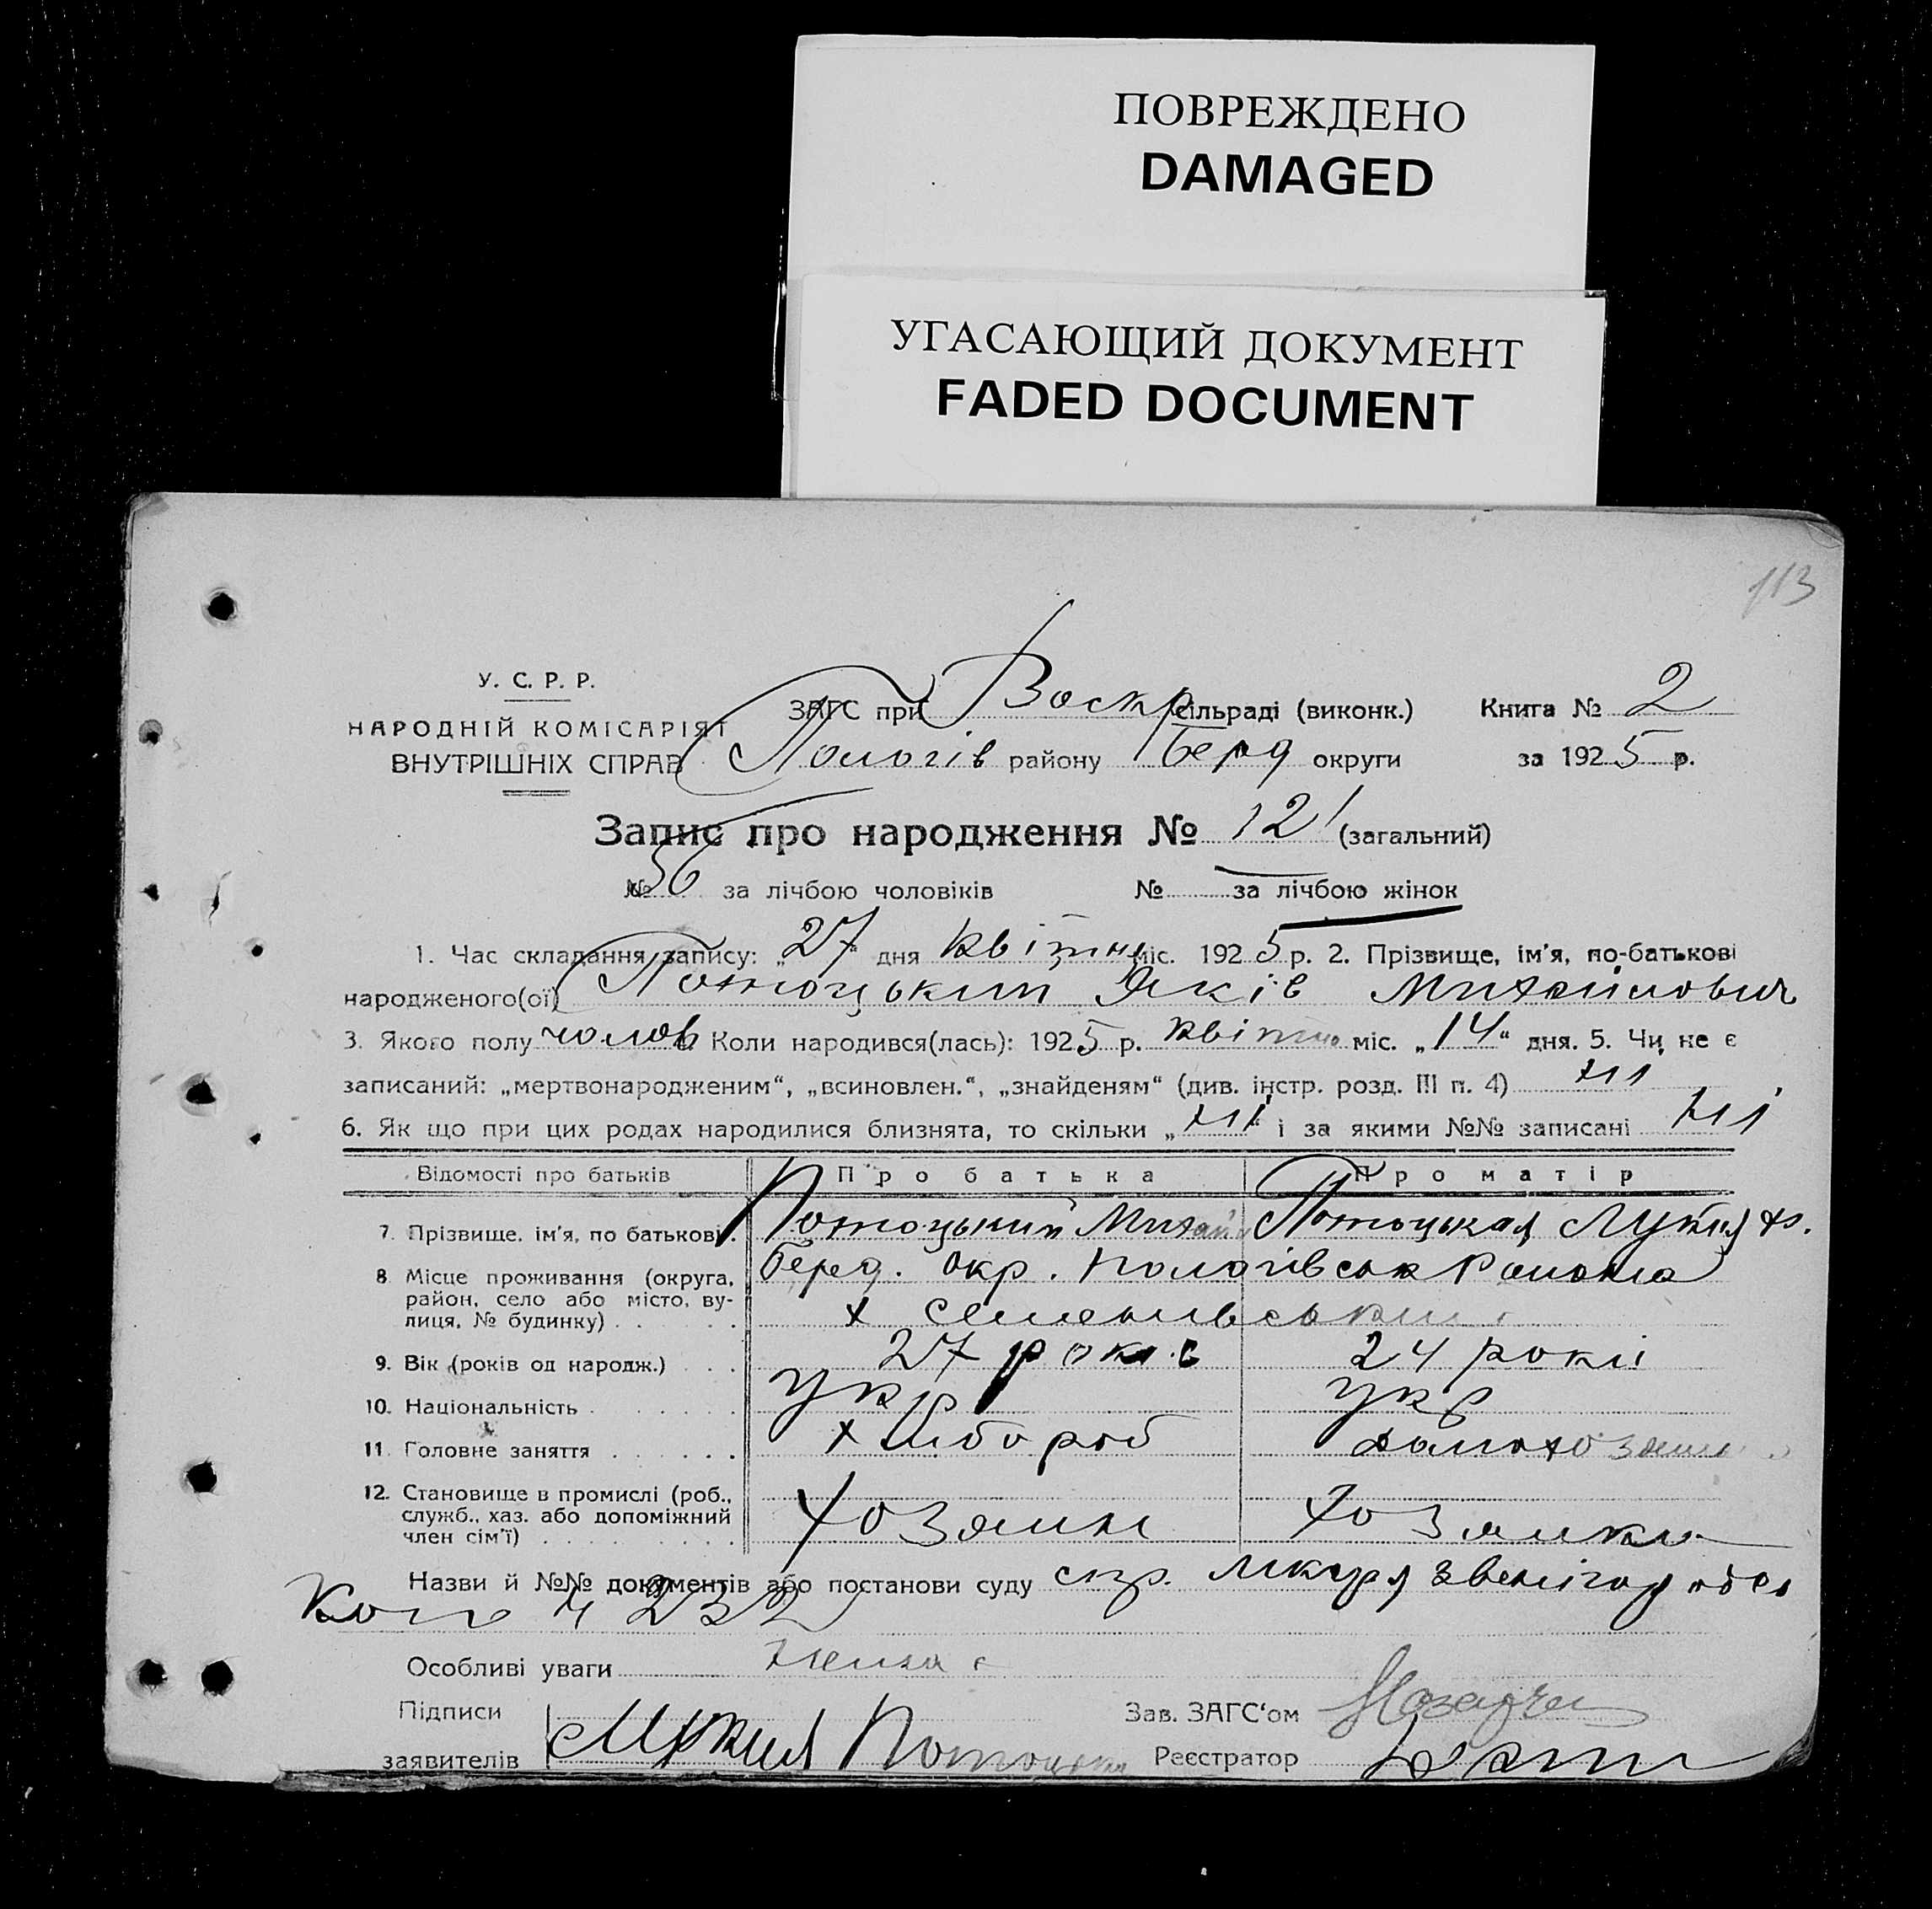 ПОВРЕЖДЕНО
DAMAGED
УГАСАЮЩИЙ ДОКУМЕНТ
FADED DOCUMENT
113
У. С. Р. Р.
НАРОДНІЙ КОМІСАРІЯТ
ВНУТРІШНІХ СПРАВ
ЗАГС при Воскр сільраді (виконк.) Книга № 2
Пологів району Берд округи за 1925 р.
Запис про народження № 121 (загальний)
№ 56 за лічбою чоловіків № за лічбою жінок
1. Час складання запису: „27“ дня квітня міс. 1925 р. 2. Прізвище, ім'я, по-батькові
народженого(ої) Потоцький Яків Михайлович
3. Якого полу чолов Коли народився(лась): 1925 р. квітня міс. „14“ дня. 5. Чи не є
записаний: „мертвонародженим“, „всиновлен.“, „знайденям“ (див. інстр. розд. III п. 4) ні
6. Як що при цих родах народилися близнята, то скільки „ні“ і за якими №№ записані ні
Відомості про батьків Про батька Про матір
7. Прізвище, ім'я, по батькові. Потоцький Михай Потоцькая Лукія
8 Місце проживання (округа, район, село або місто, вулиця, № будинку) Берд. окр. Пологівськ Района
х Семенивський
9. Вік (років од народж.) 27 років 24 роки
10. Національність укр укр
11. Головне заняття хлібороб
12. Становище в промислі (роб., служб., хаз. або допоміжний член сім'ї) хозяин хозяйка
Назви й №№ документів або постанови суду
232
Особливі уваги немає
Підписи
заявителів Потоцький
Зав. ЗАГС'ом
Реєстратор